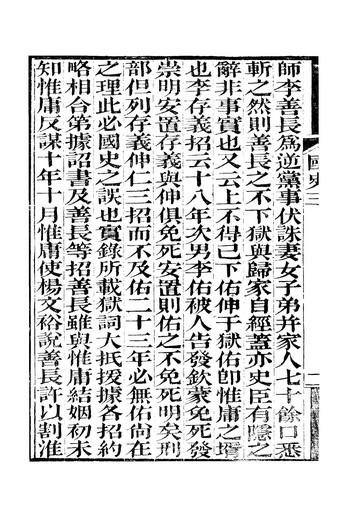 師李善長爲逆黨事伏誅妻女子弟并家人七十餘口悉
斬之然則善長之不下獄與歸家自經蓋亦史臣有隱之
辭非事實也又云上不得已下佑伸于獄佑卽惟庸之壻
也李存義招云十八年次男李佑被人告發欽蒙免死發
崇明安置存義與伸俱免死安置則佑之不免死明矣刑
部但列存義伸仁三招而不及佑二十三年必無佑尚在
之理此必國史之誤也實錄所載獄詞大抵援據各招約
略相合第據詔書及善長等招善長雖與惟庸結姻初未
知惟庸反謀十年十月惟庸使楊文裕說善長許以割淮
國史三